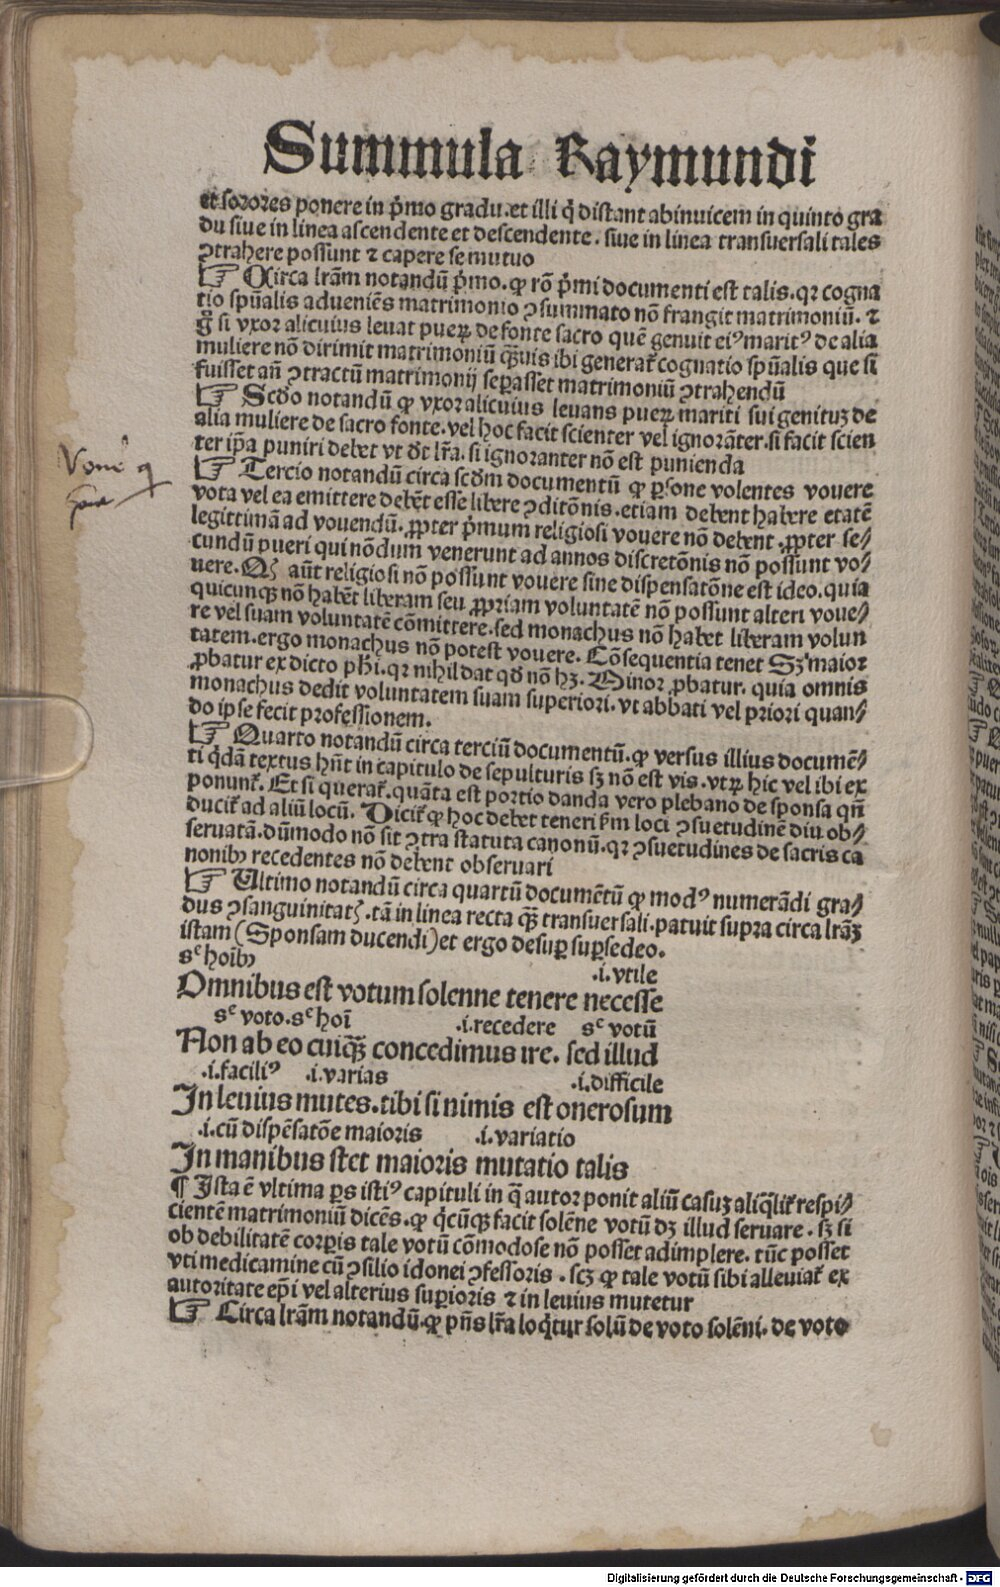 Summula Raymundi
et sorores ponere in p̃mo gradu. et illi q̃ distant abinuicem in quinto gra
du siue in linea ascendente et descendente. siue in linea transuersali tales
ꝯtrahere possunt ⁊ capere se mutuo
☞ Circa lr̃am notandũ p̃mo. ꝙ rõ p̃mi documenti est talis. qꝛ cogna
tio spũalis adueniẽs matrimonio ꝯsummato nõ frangit matrimoniũ. ⁊
g̊ si vxor alicuius leuat pueꝝ de fonte sacro quẽ genuit eiꝰ maritꝰ de alia
muliere nõ dirimit matrimoniũ qᷓuis ibi generat᷑ cognatio spũalis que si
fuisset añ ꝯtractũ matrimonij seꝑasset matrimoniũ ꝯtrahendũ
☞ Scd̃o notandũ ꝙ vxor alicuius leuans pueꝝ mariti sui genituꝫ de
alia muliere de sacro fonte. vel hoc facit scienter vel ignorãter. si facit scien
ter ip̃a puniri debet vt dt̃ lr̃a. si ignoranter nõ est punienda
☞ Tercio notandũ circa scd̃m documentũ ꝙ ꝑsone volentes vouere
vota vel ea emittere debẽt esse libere ꝯditõnis. etiam debent habere etatẽ
legittimã ad vouendũ. ꝓpter p̃mum religiosi vouere nõ debent. ꝓpter se⸗
cundũ pueri qui nõdum venerunt ad annos discretõnis nõ possũnt vo⸗
uere. Qꝫ aũt religiosi nõ possunt vouere sine dispensatõne est ideo. quia
quicunqꝫ nõ habẽt liberam seu ꝓpriam voluntatẽ nõ possunt alteri voue⸗
re vel suam voluntatẽ cõmittere. sed monachus nõ habet liberam volun
tatem. ergo monachus nõ potest vouere. Cõsequentia tenet Sꝫ maior
ꝓbatur ex dicto ph̃i. qꝛ nihil dat qd̃ nõ hꝫ. Minor ꝓbatur. quia omnis
monachus dedit voluntatem suam superiori. vt abbati vel priori quan⸗
do ipse fecit professionem.
☞ Quarto notandũ circa terciũ documentũ. ꝙ versus illius documẽ⸗
ti q̃dã textus hñt in capitulo de sepulturis sꝫ nõ est vis. vtꝝ hic vel ibi ex
ponunt᷑. Et si querat᷑. quãta est portio danda vero plebano de sponsa qñ
ducit᷑ ad aliũ locũ. Dicit᷑ ꝙ hoc debet teneri ẜm loci ꝯsuetudinẽ diu ob⸗
seruatã. dũmodo nõ sit ꝯtra statuta canonũ. qꝛ ꝯsuetudines de sacris ca
nonibꝰ recedentes nõ debent obseruari
☞ Ultimo notandũ circa quartũ documẽtũ ꝙ modꝰ numerãdi gra⸗
dus ꝯsanguinitatꝭ. tã in linea recta qᷓ transuersali. patuit supra circa lr̃aꝫ
istam (Sponsam ducendi) et ergo desuꝑ suꝑsedeo.
sᶜ hoĩbꝰ .i. vtile
Omnibus est votum solenne tenere necesse
sᶜ voto. sᶜ hoĩ .i. recedere sᶜ votũ
Non ab eo cuiqᷓ concedimus ire. sed illud
.i. faciliꝰ .i. varias .i. difficile
In leuius mutes. tibi si nimis est onerosum
.i. cũ dispẽsatõe maioris .i. variatio
In manibus stet maioris mutatio talis
¶ Ista ẽ vltima ꝑs istiꝰ capituli in q̃ autor ponit aliũ casuꝫ aliq̃lit᷑ respi⸗
cientẽ matrimoniũ dicẽs. ꝙ q̃cũqꝫ facit solẽne votũ dꝫ illud seruare. sꝫ si
ob debilitatẽ corꝑis tale votũ cõmodose nõ posset adimplere. tũc posset
vti medicamine cũ ꝯsilio idonei ꝯfessoris. scꝫ ꝙ tale votũ sibi alleuiat᷑ ex
autoritate ep̃i vel alterius suꝑioris ⁊ in leuius mutetur
☞ Circa lr̃am notandũ. ꝙ pñs lr̃a loq̃tur solũ de voto solẽni. de voto
Digitalisierung gefördert durch die Deutsche Forschungsgemeinschaft - DFG